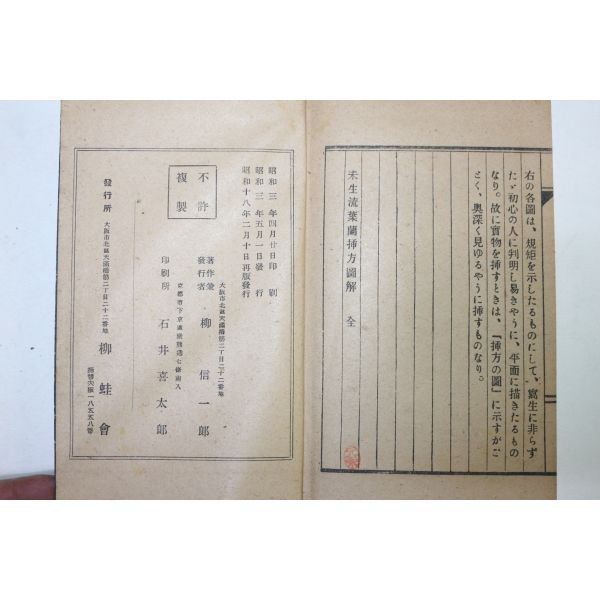 右の各圖は、規矩を示したるものにして、寫生に非らず
たゞ初心の人に判明し易きやうに、平面に描きたるもの
なり。故に實物を挿すときは、「挿方の圖」に示すがご
とく、奥深く見ゆるやうに挿すものなり。
未生流葉蘭挿方圖解 全
昭和三年四月廿日印刷
昭和三年五月一日發行
昭和十八年二月十日再版發行
不許
複製
大阪市北區天滿橋筋二丁目二十二番地
著作兼
發行者 柳信一郎
京都市下京區
七條南入
印刷所 石井喜太郎
發行所 大阪市北區天滿橋筋二丁目二十二番地 柳蛙會
振替大阪一八五五八番